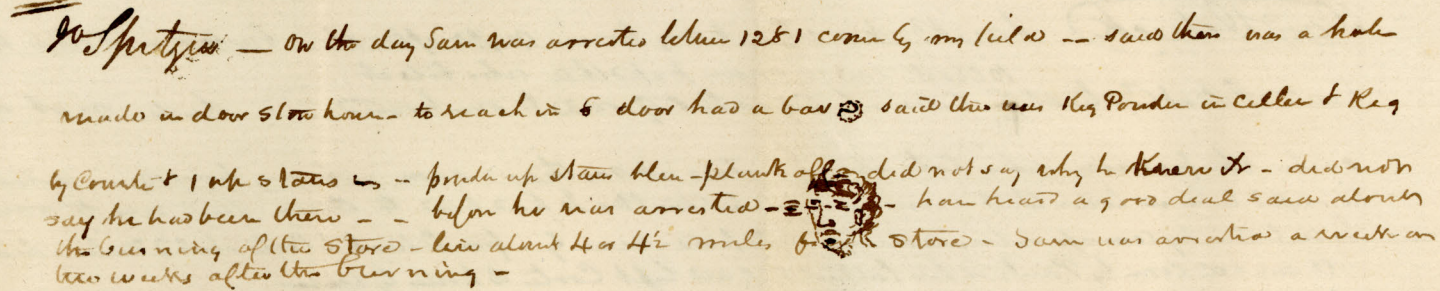 Jo Spitzer — On the day Sam was arrested between 12 & 1 come by my field — said there was a hole
made in door Store house — to reach in & door had a bar said there was Keg Powder in Celler & Keg
by Counter & 1 up stairs — powder up stairs blew plank off did not say why he Knew it — did not
say he had been there — before he was arrested — have heard a good deal said about
the burning of the Store — live about 4 or 4½ miles store — Sam was arrested a week or
two weeks after the burning —